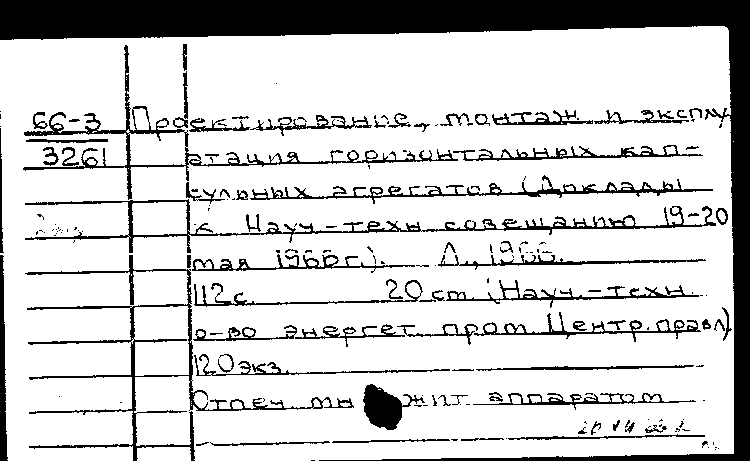 66-3 Проектирование, монтаж и эксплу
3261 атация горизонтальных кап-
сульных агрегатов (Доклады
к Науч-техн совещанию 19-20
мая 1966 г.). Л., 1966.
112 с. 20 см. (Науч.-техн.
о-во энергет пром. Центр. правл)
120 экз.
Отпеч мн жит аппаратом